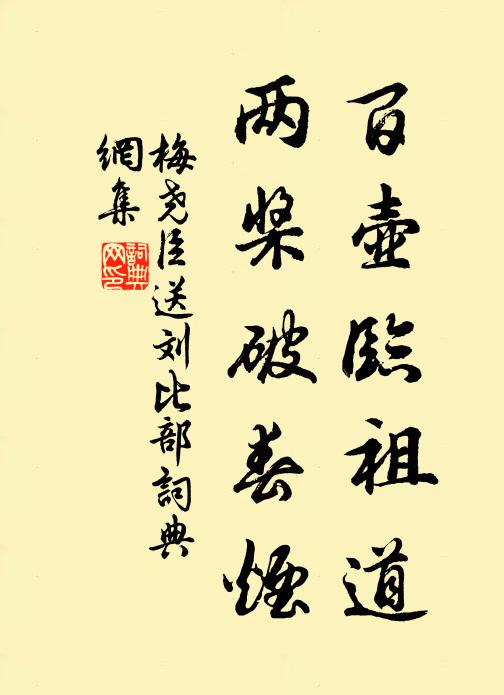 百壺臨祖道
两桨破春煙
梅尧臣送刘比部詞典
網集
詞典網印